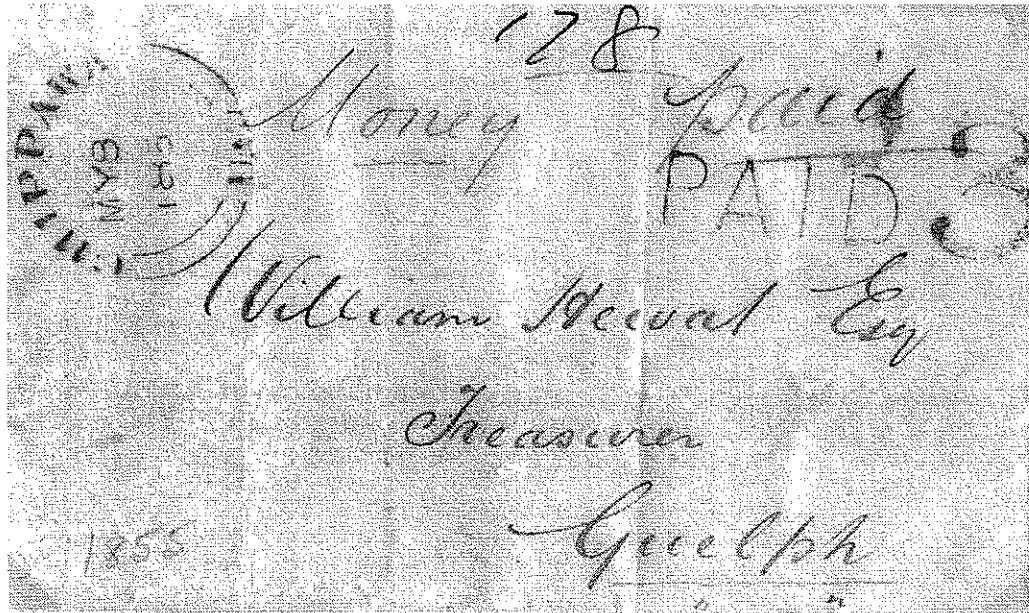 178
Money paid
PAID 3
William Hewat Esq
Treasurer
Guelph
1855